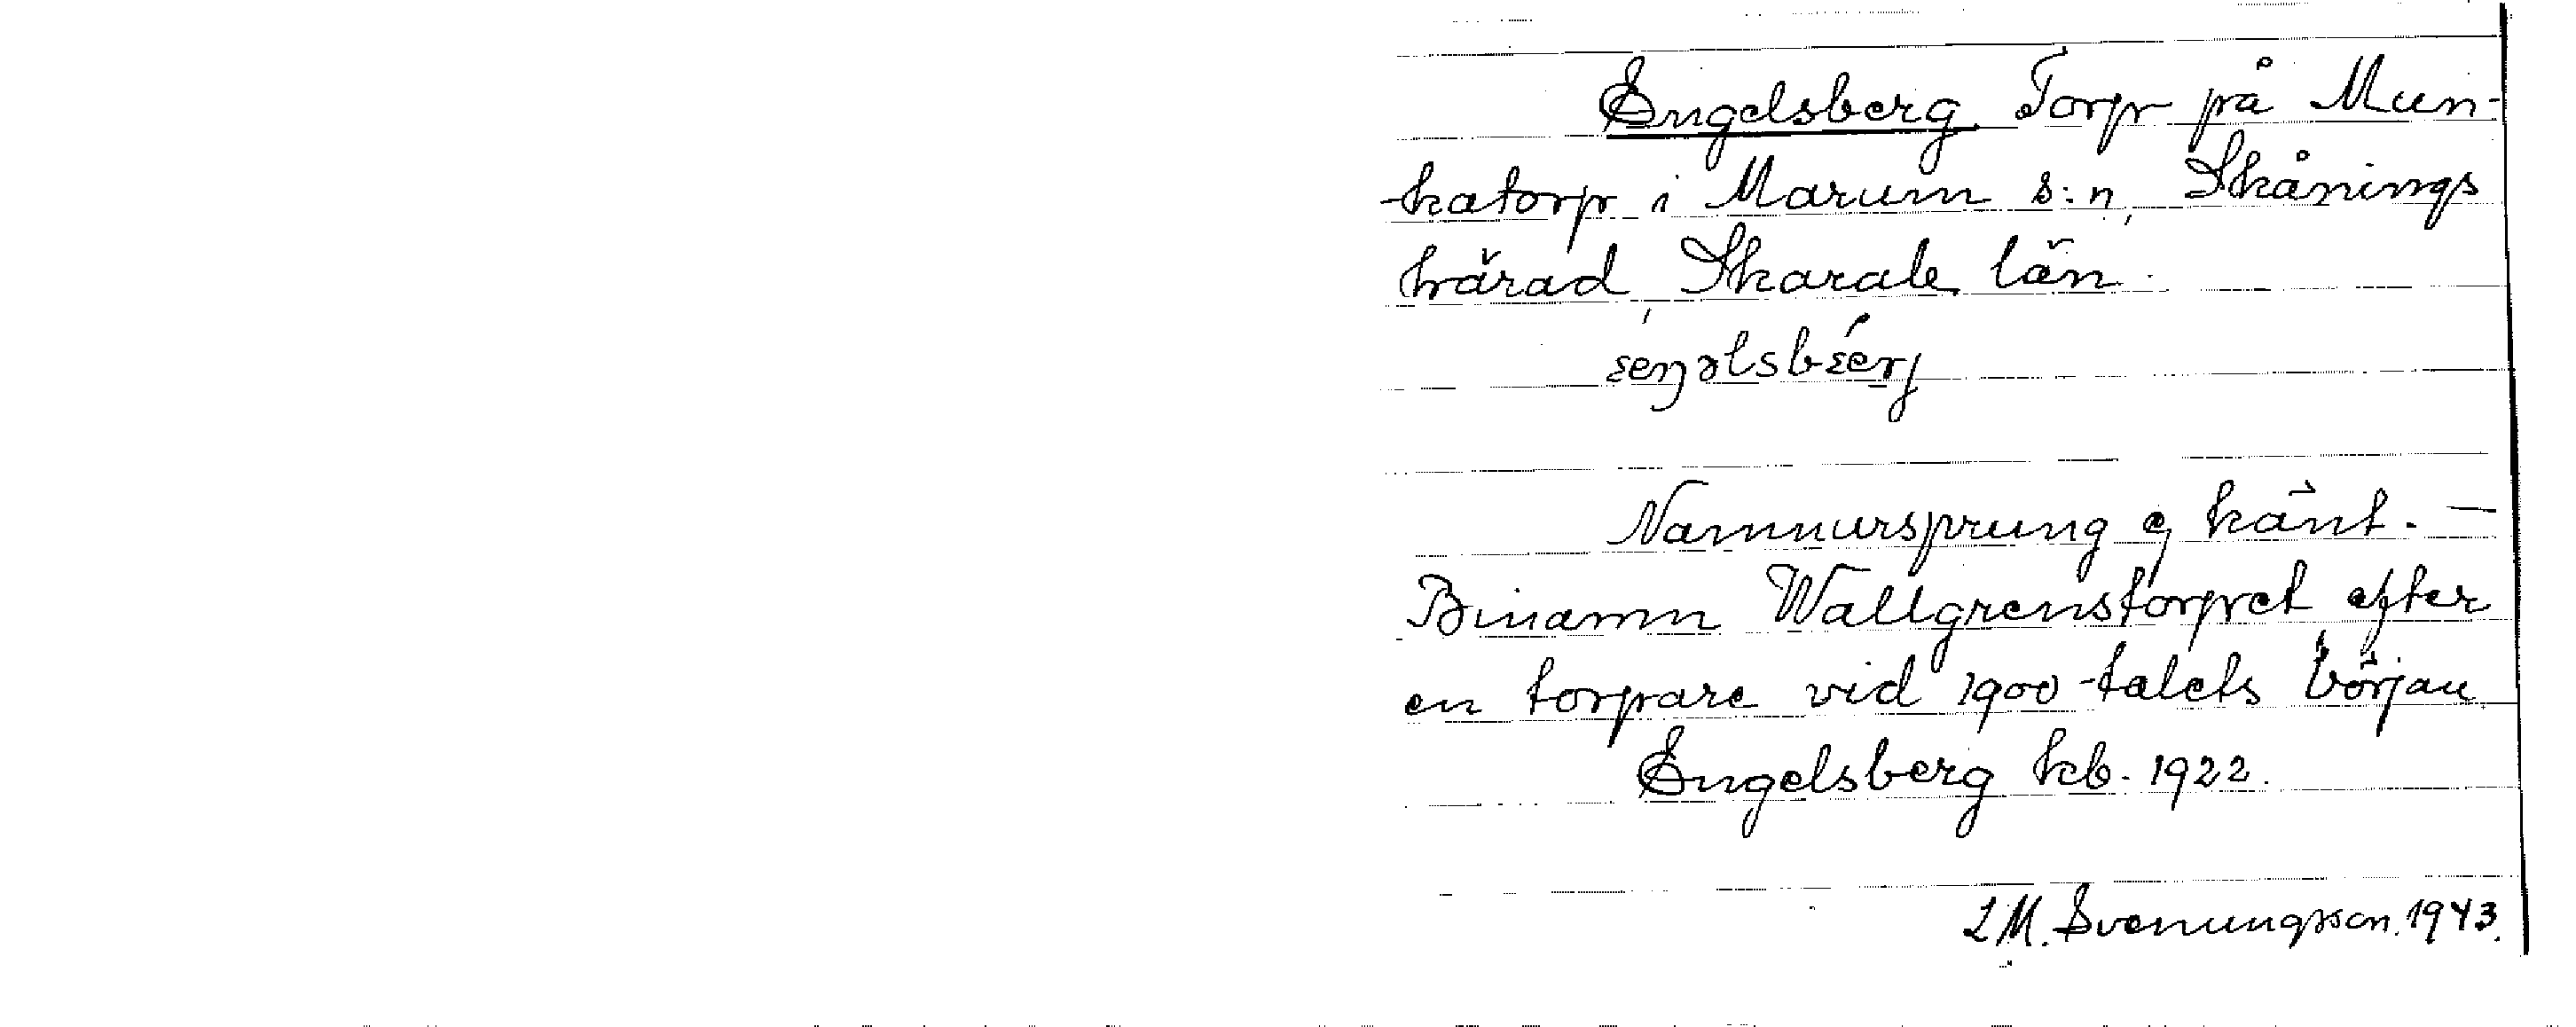 Engelsberg. Torp på Mun-
katorp i Marum s:n, Skånings
härad, Skarab. län.
Namnursprung ej känt. —
Binamn Wallgrenstorpet efter
en torpare vid 1900-talets början.
Engelsberg kb. 1922.
L M. Svenungsson. 1943.